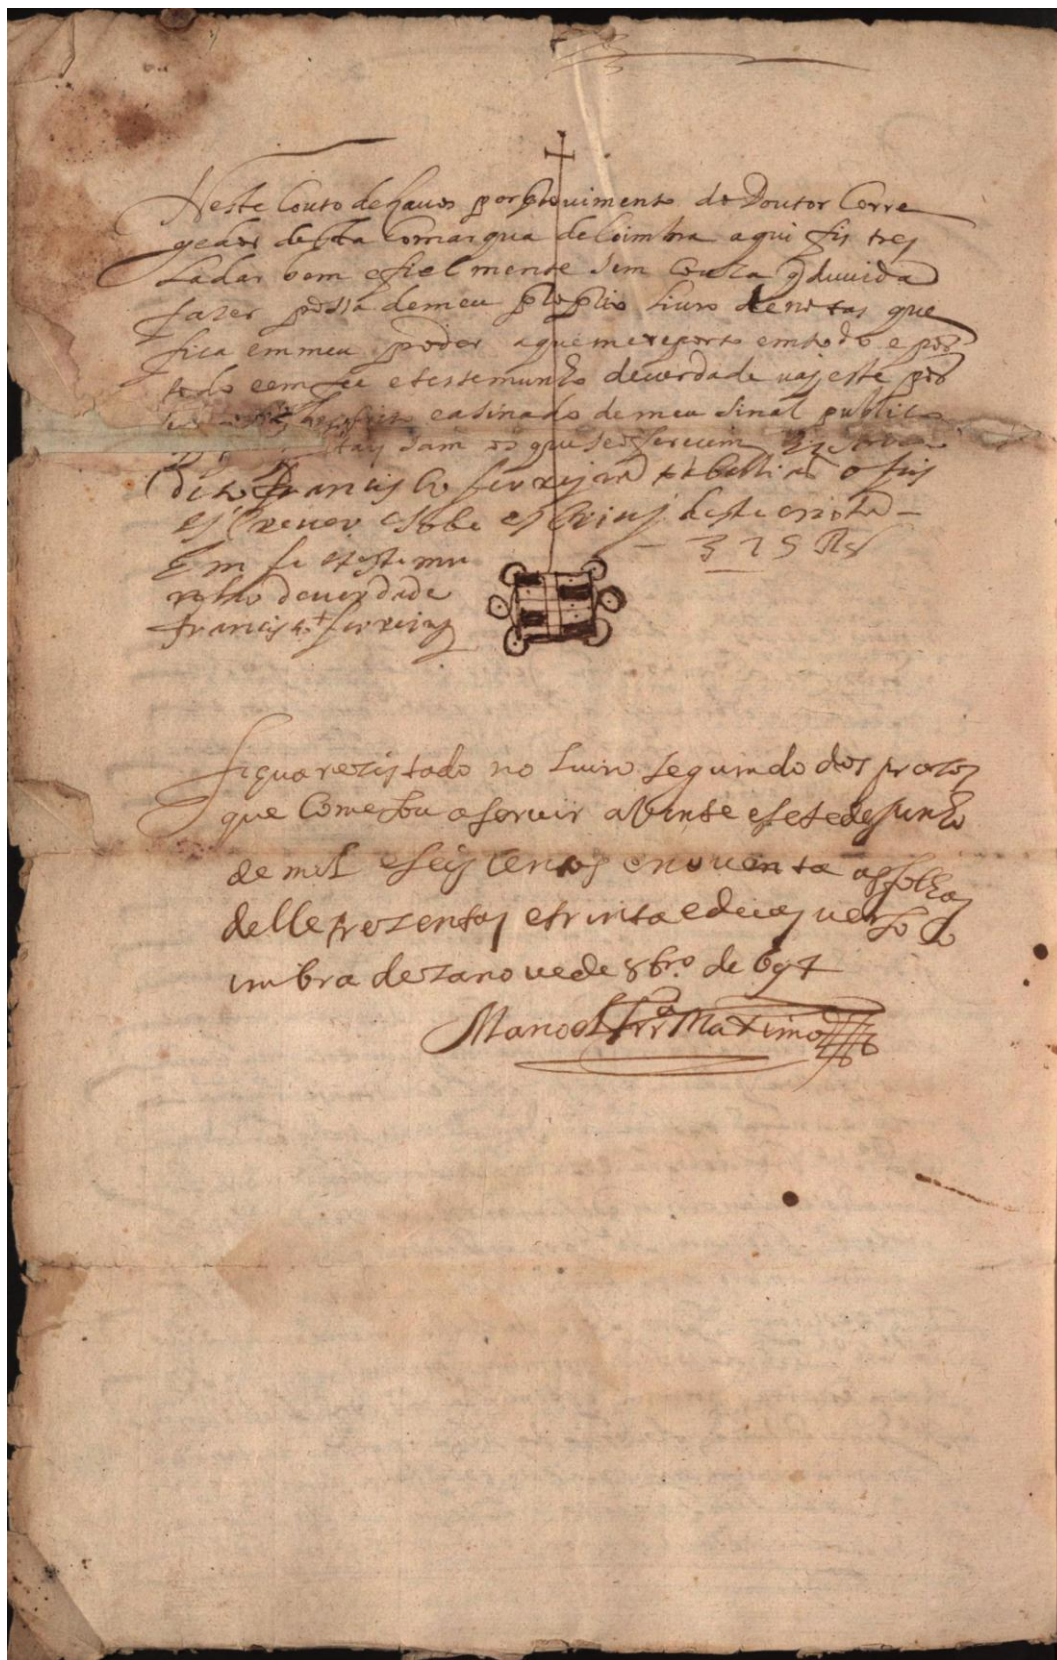 Neste Couto de Lavos por provimento do Doutor Corre
gedor desta Comargua de Coimbra aqui fis tres
ladar bem e fielmente sem Couza q duvida
fazer possa de meu proprio Livro de notas que
fica em meu poder a que me reporto em todo e por
todo e em fee e testemunho de verdade vaj este por
e asinado de meu sinal publico
sam os que se oferecem
dito Francisco ferrejra taballiam o fis
escrever e sobescrevj desta
Em fe e testemu
nho de verdade
Francisco ferreira
329 Rs
Fiqua rezistado no Livro segundo dos prazos
que Comesou a servir a vinte e sete de Junho
de mil e seis Centos e noventa as folhas
delle trezentas e trinta e duas verso Co
imbra dezanove de 8bro de 694
Manoel Frra Maximo